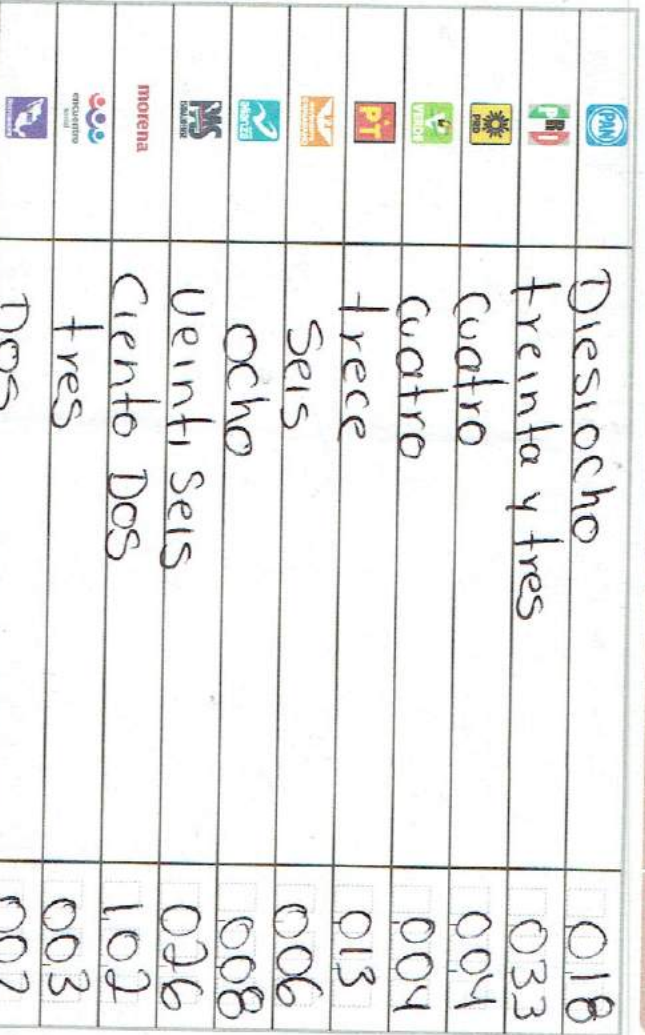 PAN Diesiocho 018
PRI treinta y tres 033
PRD cuatro 004
VERDE cuatro 004
PT trece 013
Seis 006
alianza ocho 008
PAS Veinti Seis 026
morena Ciento Dos 102
encuentro social tres 003
Dos 002